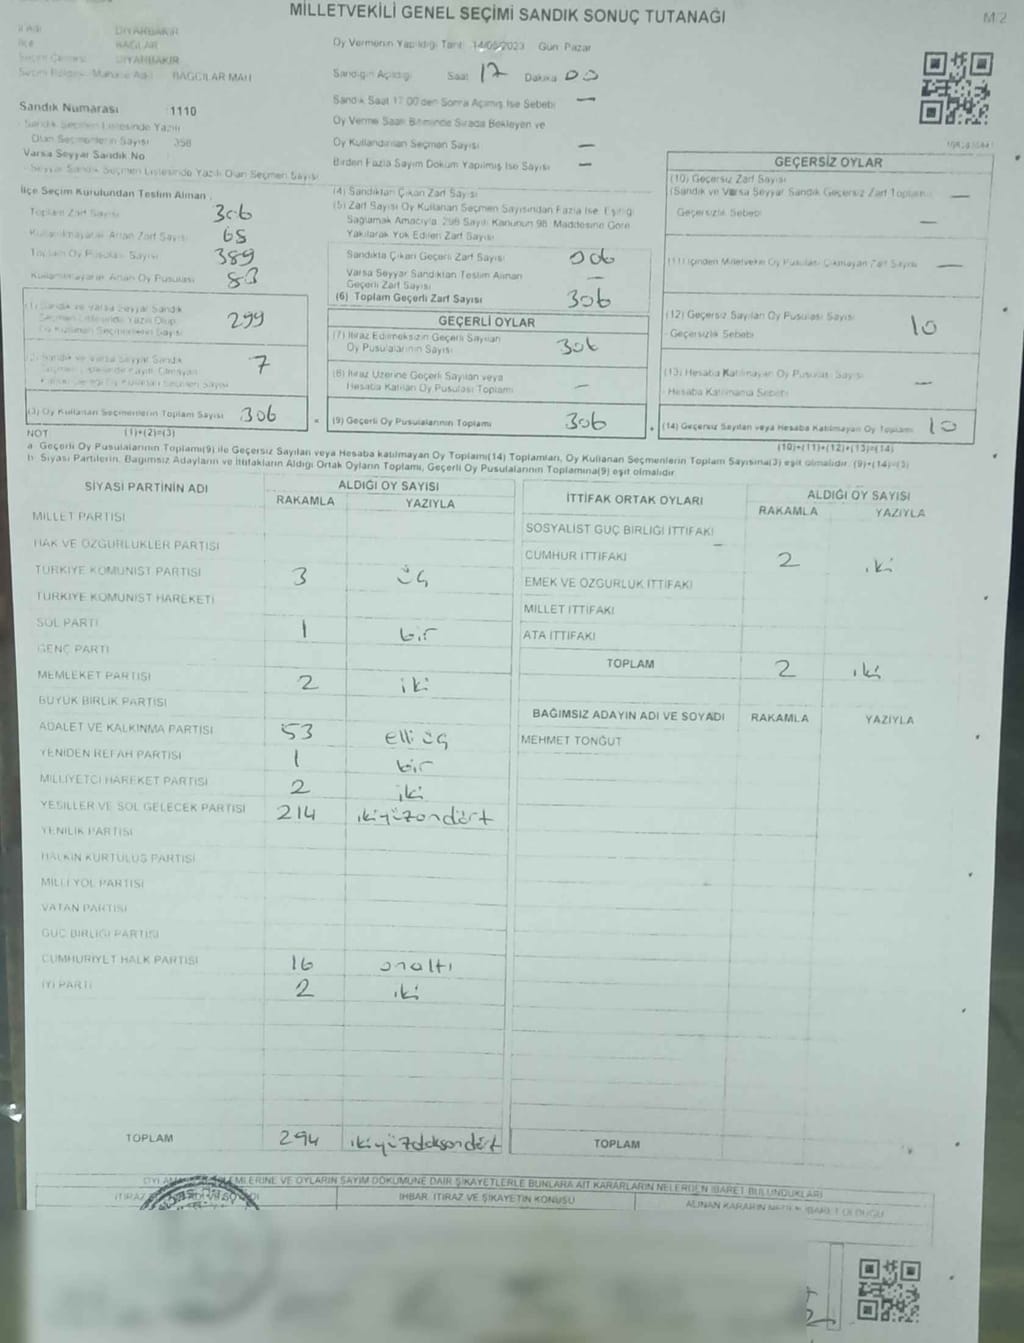 MİLLETVEKİLİ GENEL SEÇİMİ SANDIK SONUÇ TUTANAĞI
M 2
DİYARBAKIR
BAĞLAR
DİYARBAKIR
BAĞCILAR MAH
Oy Vermenin Yapıldığı Tarih 14/05/2023 Gün Pazar
Sandığın Açıldığı Saat 17 Dakika 00
Sandık Saat 17:00'den Sonra Açılmış İse Sebebi —
Oy Verme Saati Bitiminde Sırada Bekleyen ve
Oy Kullandırılan Seçmen Sayısı —
Birden Fazla Sayım Döküm Yapılmış İse Sayısı —
Sandık Numarası 1110
Sandık Seçmen Listesinde Yazılı
Olan Seçmenlerin Sayısı 358
Varsa Seyyar Sandık No
Seyyar Sandık Seçmen Listesinde Yazılı Olan Seçmen Sayısı
İlçe Seçim Kurulundan Teslim Alınan
Toplam Zarf Sayısı 306
Kullanılmayarak Artan Zarf Sayısı 65
Toplam Oy Pusulası Sayısı 389
Kullanılmayarak Artan Oy Pusulası 83
(1) Sandık ve Varsa Seyyar Sandık
Seçmen Listesinde Yazılı Olup
Oy Kullanan Seçmenlerin Sayısı 299
(2) Sandık ve Varsa Seyyar Sandık
Seçmen Listesinde Kayıtlı Olmayan 7
(3) Oy Kullanan Seçmenlerin Toplam Sayısı 306
(1)+(2)=(3)
(4) Sandıktan Çıkan Zarf Sayısı
(5) Zarf Sayısı Oy Kullanan Seçmen Sayısından Fazla İse, Eşitliği
Sağlamak Amacıyla, 298 Sayılı Kanunun 98. Maddesine Göre
Yakılarak Yok Edilen Zarf Sayısı
Sandıkta Çıkan Geçerli Zarf Sayısı 306
Varsa Seyyar Sandıktan Teslim Alınan
Geçerli Zarf Sayısı —
(6) Toplam Geçerli Zarf Sayısı 306
GEÇERLİ OYLAR
(7) İtiraz Edilmeksizin Geçerli Sayılan
Oy Pusulalarının Sayısı 306
(8) İtiraz Üzerine Geçerli Sayılan veya
Hesaba Katılan Oy Pusulası Toplamı —
(9) Geçerli Oy Pusulalarının Toplamı 306
GEÇERSİZ OYLAR
(10) Geçersiz Zarf Sayısı
(Sandık ve Varsa Seyyar Sandık Geçersiz Zarf Toplamı) —
Geçersizlik Sebebi —
(11) İçinden Milletvekili Oy Pusulası Çıkmayan Zarf Sayısı —
(12) Geçersiz Sayılan Oy Pusulası Sayısı 10
Geçersizlik Sebebi
(13) Hesaba Katılmayan Oy Pusulası Sayısı —
Hesaba Katılmama Sebebi
(14) Geçersiz Sayılan veya Hesaba Katılmayan Oy Toplamı 10
(10)+(11)+(12)+(13)=(14)
NOT
a. Geçerli Oy Pusulalarının Toplamı(9) ile Geçersiz Sayılan veya Hesaba katılmayan Oy Toplamı(14) Toplamları, Oy Kullanan Seçmenlerin Toplam Sayısına(3) eşit olmalıdır. (9)+(14)=(3)
b. Siyasi Partilerin, Bağımsız Adayların ve İttifakların Aldığı Ortak Oyların Toplamı, Geçerli Oy Pusulalarının Toplamına(9) eşit olmalıdır.
SİYASİ PARTİNİN ADI ALDIĞI OY SAYISI
RAKAMLA YAZIYLA
MİLLET PARTİSİ
HAK VE ÖZGÜRLÜKLER PARTİSİ
TÜRKİYE KOMÜNİST PARTİSİ 3 üç
TÜRKİYE KOMÜNİST HAREKETİ
SOL PARTİ 1 bir
GENÇ PARTİ
MEMLEKET PARTİSİ 2 iki
BÜYÜK BİRLİK PARTİSİ
ADALET VE KALKINMA PARTİSİ 53 elli üç
YENİDEN REFAH PARTİSİ 1 bir
MİLLİYETÇİ HAREKET PARTİSİ 2 iki
YEŞİLLER VE SOL GELECEK PARTİSİ 214 ikiyüzondört
YENİLİK PARTİSİ
HALKIN KURTULUŞ PARTİSİ
MİLLİ YOL PARTİSİ
VATAN PARTİSİ
GÜÇ BİRLİĞİ PARTİSİ
CUMHURİYET HALK PARTİSİ 16 onaltı
İYİ PARTİ 2 iki
TOPLAM 294 ikiyüzdoksandört
İTTİFAK ORTAK OYLARI ALDIĞI OY SAYISI
RAKAMLA YAZIYLA
SOSYALİST GÜÇ BİRLİĞİ İTTİFAKI
CUMHUR İTTİFAKI 2 iki
EMEK VE ÖZGÜRLÜK İTTİFAKI
MİLLET İTTİFAKI
ATA İTTİFAKI
TOPLAM 2 iki
BAĞIMSIZ ADAYIN ADI VE SOYADI RAKAMLA YAZIYLA
MEHMET TONĞUT
TOPLAM
İŞLEMLERİNE VE OYLARIN SAYIM DÖKÜMÜNE DAİR ŞİKAYETLERLE BUNLARA AİT KARARLARIN NELERDEN İBARET BULUNDUKLARI
İHBAR, İTİRAZ VE ŞİKAYETİN KONUSU
ALINAN KARARIN NEDEN İBARET OLDUĞU